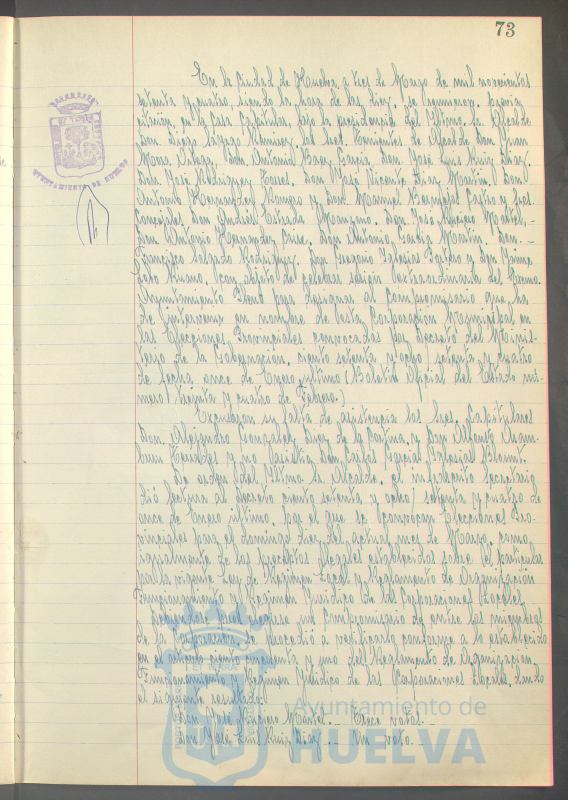 73
En la Ciudad de Huelva, a tres de Marzo de mil novecientos
setenta y cuatro, siendo la hora de las diez, se reunieron, previa
citación, en la Casa Capitular, bajo la presidencia del Iltmo. Sr. Alcalde
Don Diego Ramírez, los Sres. Tenientes de Alcalde Don Juan
Mora Ortega, Don Antonio Baez García, Don José Luis Ruiz Díaz,
Don José Rodríguez Don José Vicente Díaz Martín, Don
Antonio Hernández Romero y Don Manuel Bermúdez Castro y los Sres.
Concejales Don Andrés Estrada Manzano, Don José Montiel, -
Don Antonio Hernández Don Antonio García Martín, Don -
Francisco Salgado Rodríguez, Don Iglesias y Don Jaime
con objeto de celebrar sesión extraordinaria del Excmo.
Ayuntamiento Pleno para designar al Compromisario que ha
de intervenir en nombre de esta Corporación Municipal en
las Elecciones Provinciales convocadas por Decreto del Minis-
terio de la Gobernación, ciento setenta y ocho/ setenta y cuatro
de fecha once de Enero último (Boletín Oficial del Estado nú-
mero treinta y cuatro de Febrero.)
Excusaron su falta de asistencia los Sres. Capitulares
Don Alejandro González Díez de la Cortina y Don Alfonso Aram-
buru y no asistió Don Carlos
De orden del Iltmo. Sr. Alcalde, el infrascrito Secretario
dió lectura al Decreto ciento setenta y ocho/ setenta y cuatro de
once de Enero último, por el que se convocan Elecciones Pro-
vinciales para el domingo diez del actual mes de Marzo, como
igualmente de los preceptos legales establecidos sobre el particular
por la vigente Ley de Régimen Local y Reglamento de Organización
Funcionamiento y Régimen Jurídico de las Corporaciones Locales.
Debiendo procederse un Compromisario de entre los miembros
de la Corporación, se procedió a verificarlo conforme a lo establecido
en el artículo ciento cincuenta y uno del Reglamento de Organización,
Funcionamiento y Régimen Jurídico de las Corporaciones Locales, dando
el siguiente resultado:
Don José Montiel. - Trece votos. -
Don José Luis Ruiz Díaz. - Un voto. -
AYUNTAMIENTO DE HUELVA
Ayuntamiento de
HUELVA